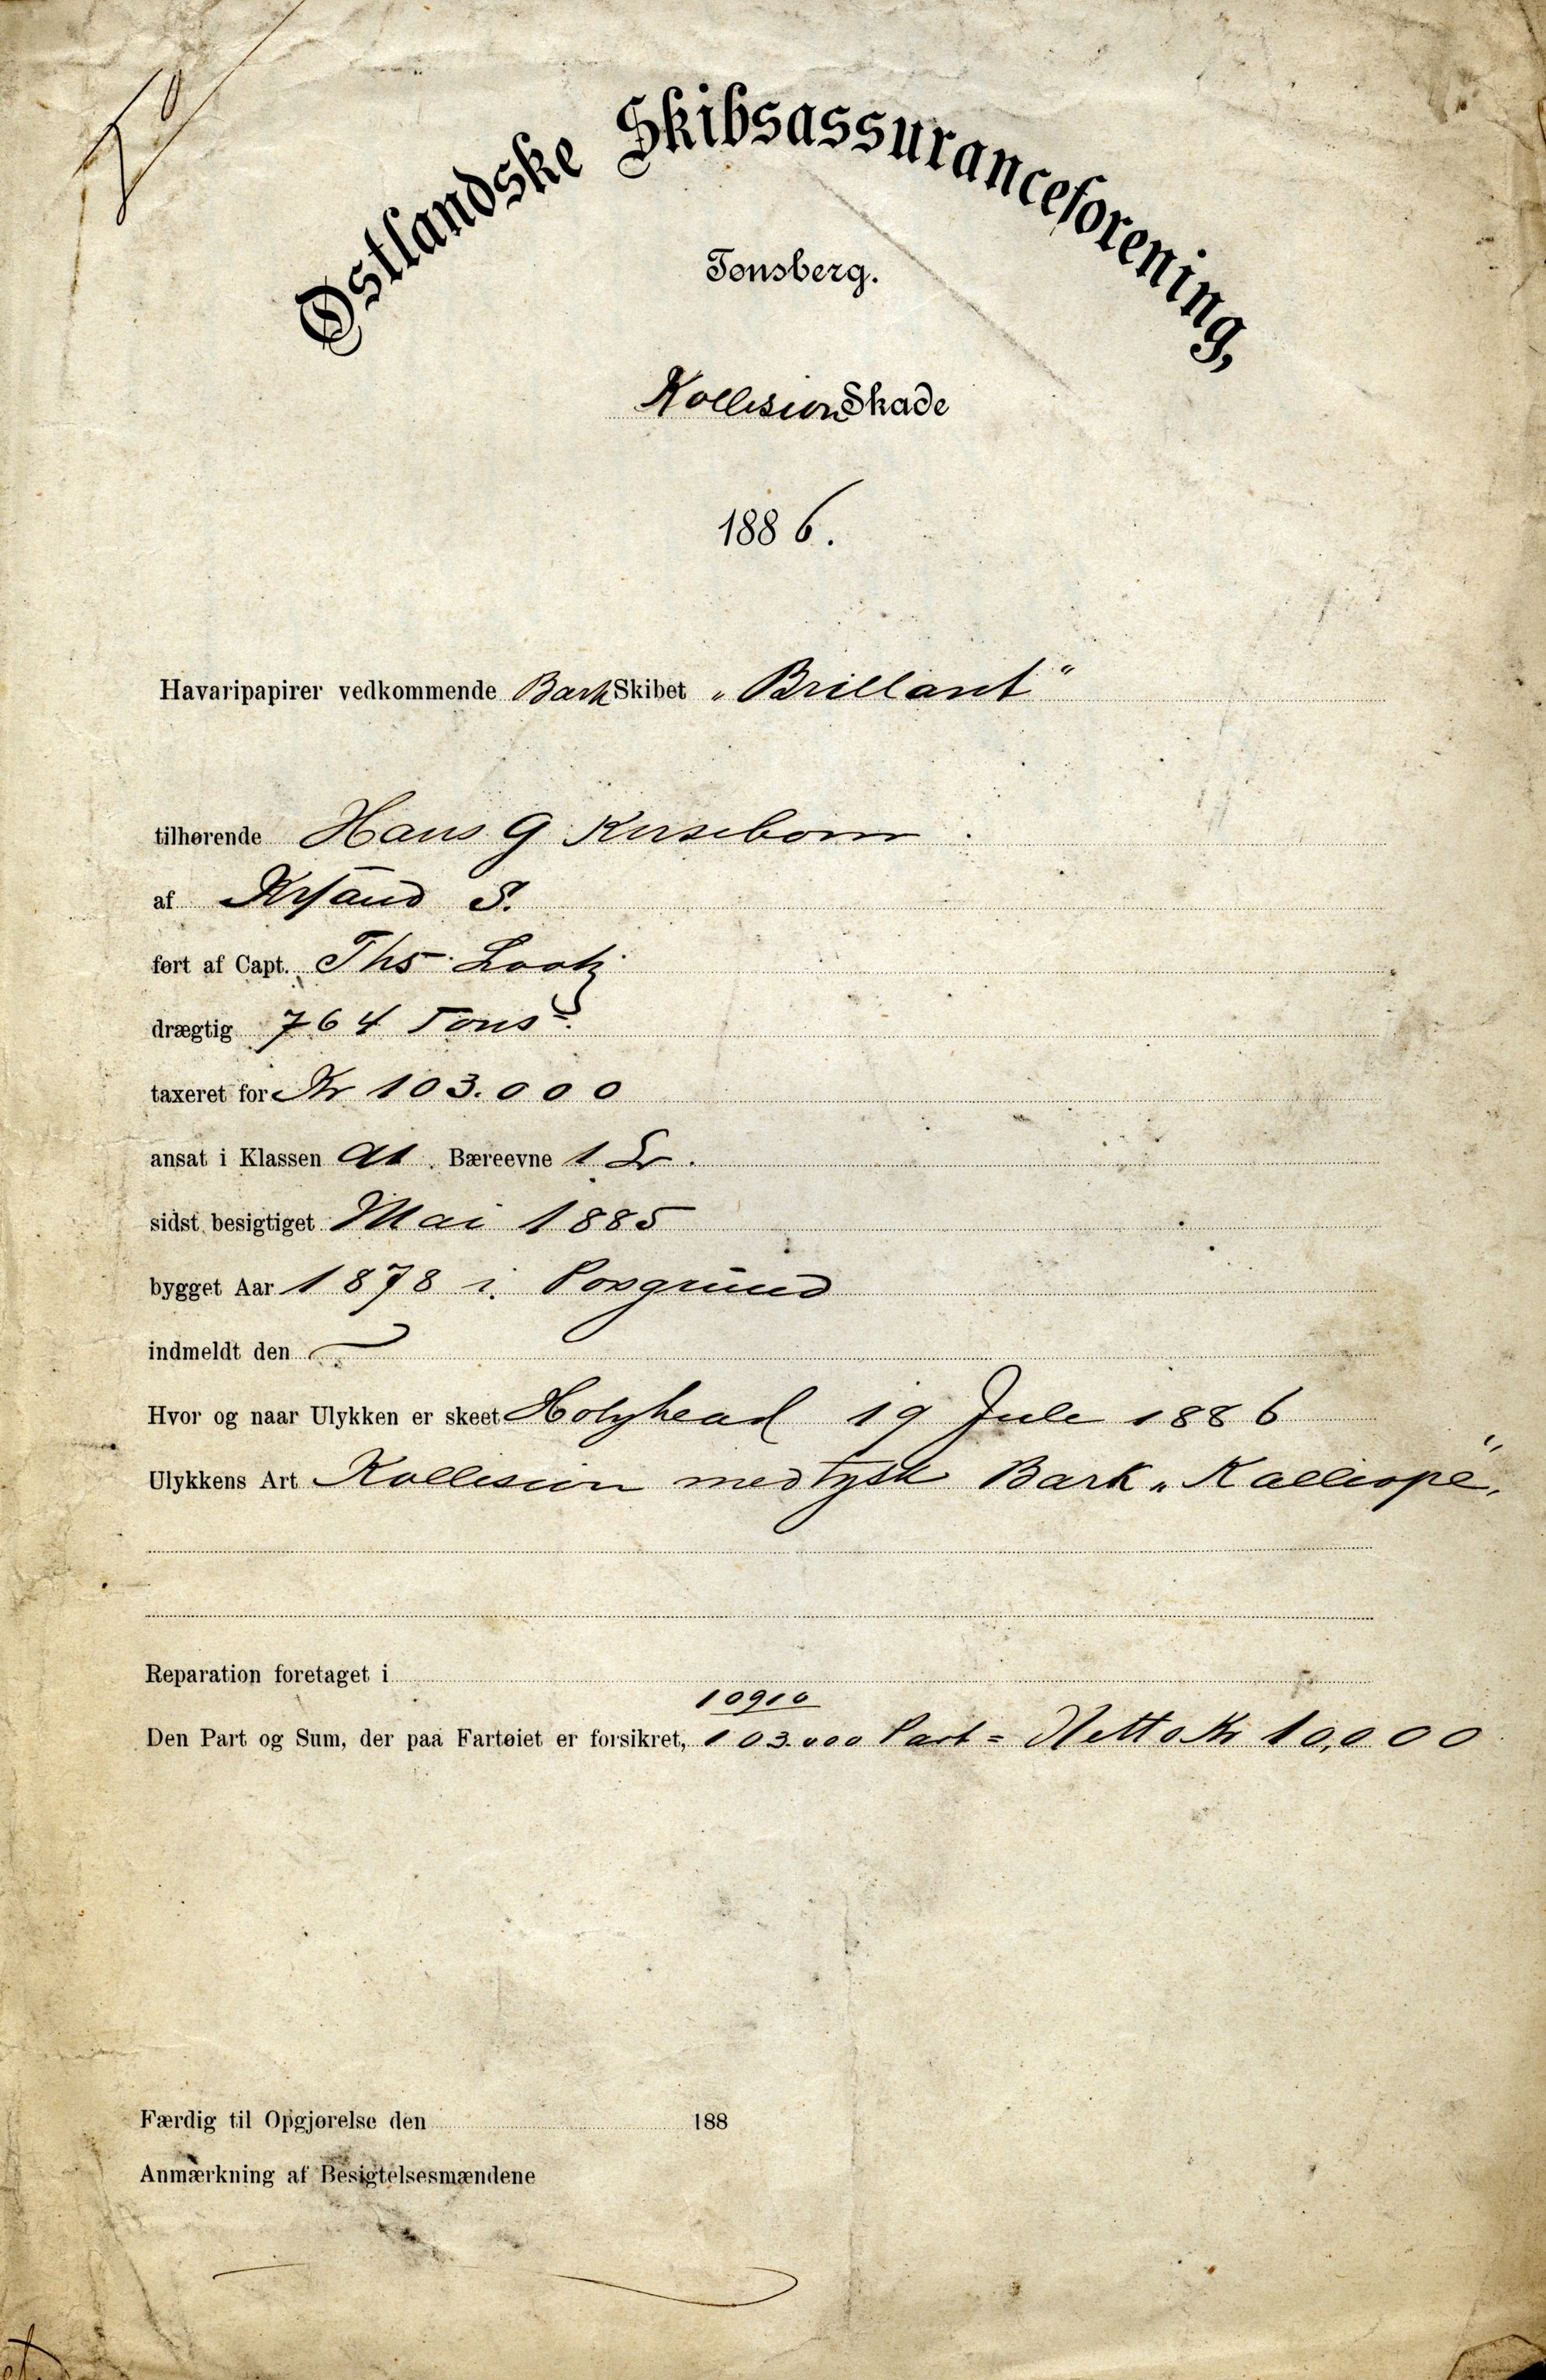 Østlandske Skibsassuranceforening,
Tønsberg.
Kollision Skade
1886.
Havaripapirer vedkommende Bark Skibet „Brillant“
tilhørende Hans G Kirsebom.
af Krsand S.
ført af Capt. Ths. Lootz
drægtig 764 Tons.
taxeret for Kr 103.000
ansat i Klassen A1. Bæreevne 1
sidst besigtiget Mai 1885
bygget Aar 1878 i Porsgrund
indmeldt den
Hvor og naar Ulykken er skeet Holyhead 19 Juli 1886
Ulykkens Art Kollision med tysk Bark „Kalliope“.
Reparation foretaget i
10910
Den Part og Sum, der paa Fartøiet er forsikret, 103.000 Part = Netto Kr 10,000
Færdig til Opgjørelse den 188
Anmærkning af Besigtelsesmændene